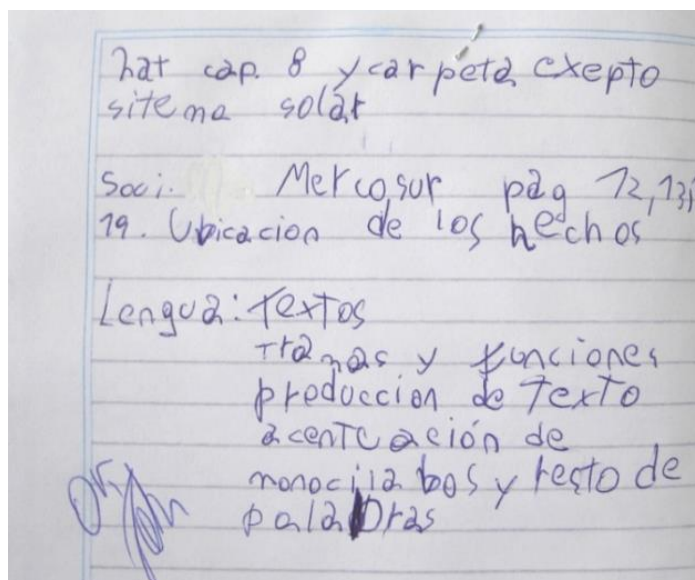 nat cap. 8 y carpeta exepto
sitema solar
Soci. Mercosur pág 12, 13,
19. Ubicacion de los hechos
Lengua: Textos
Tramas y funciones
produccion de Texto
acentuación de
monocilabos y resto de
palabras